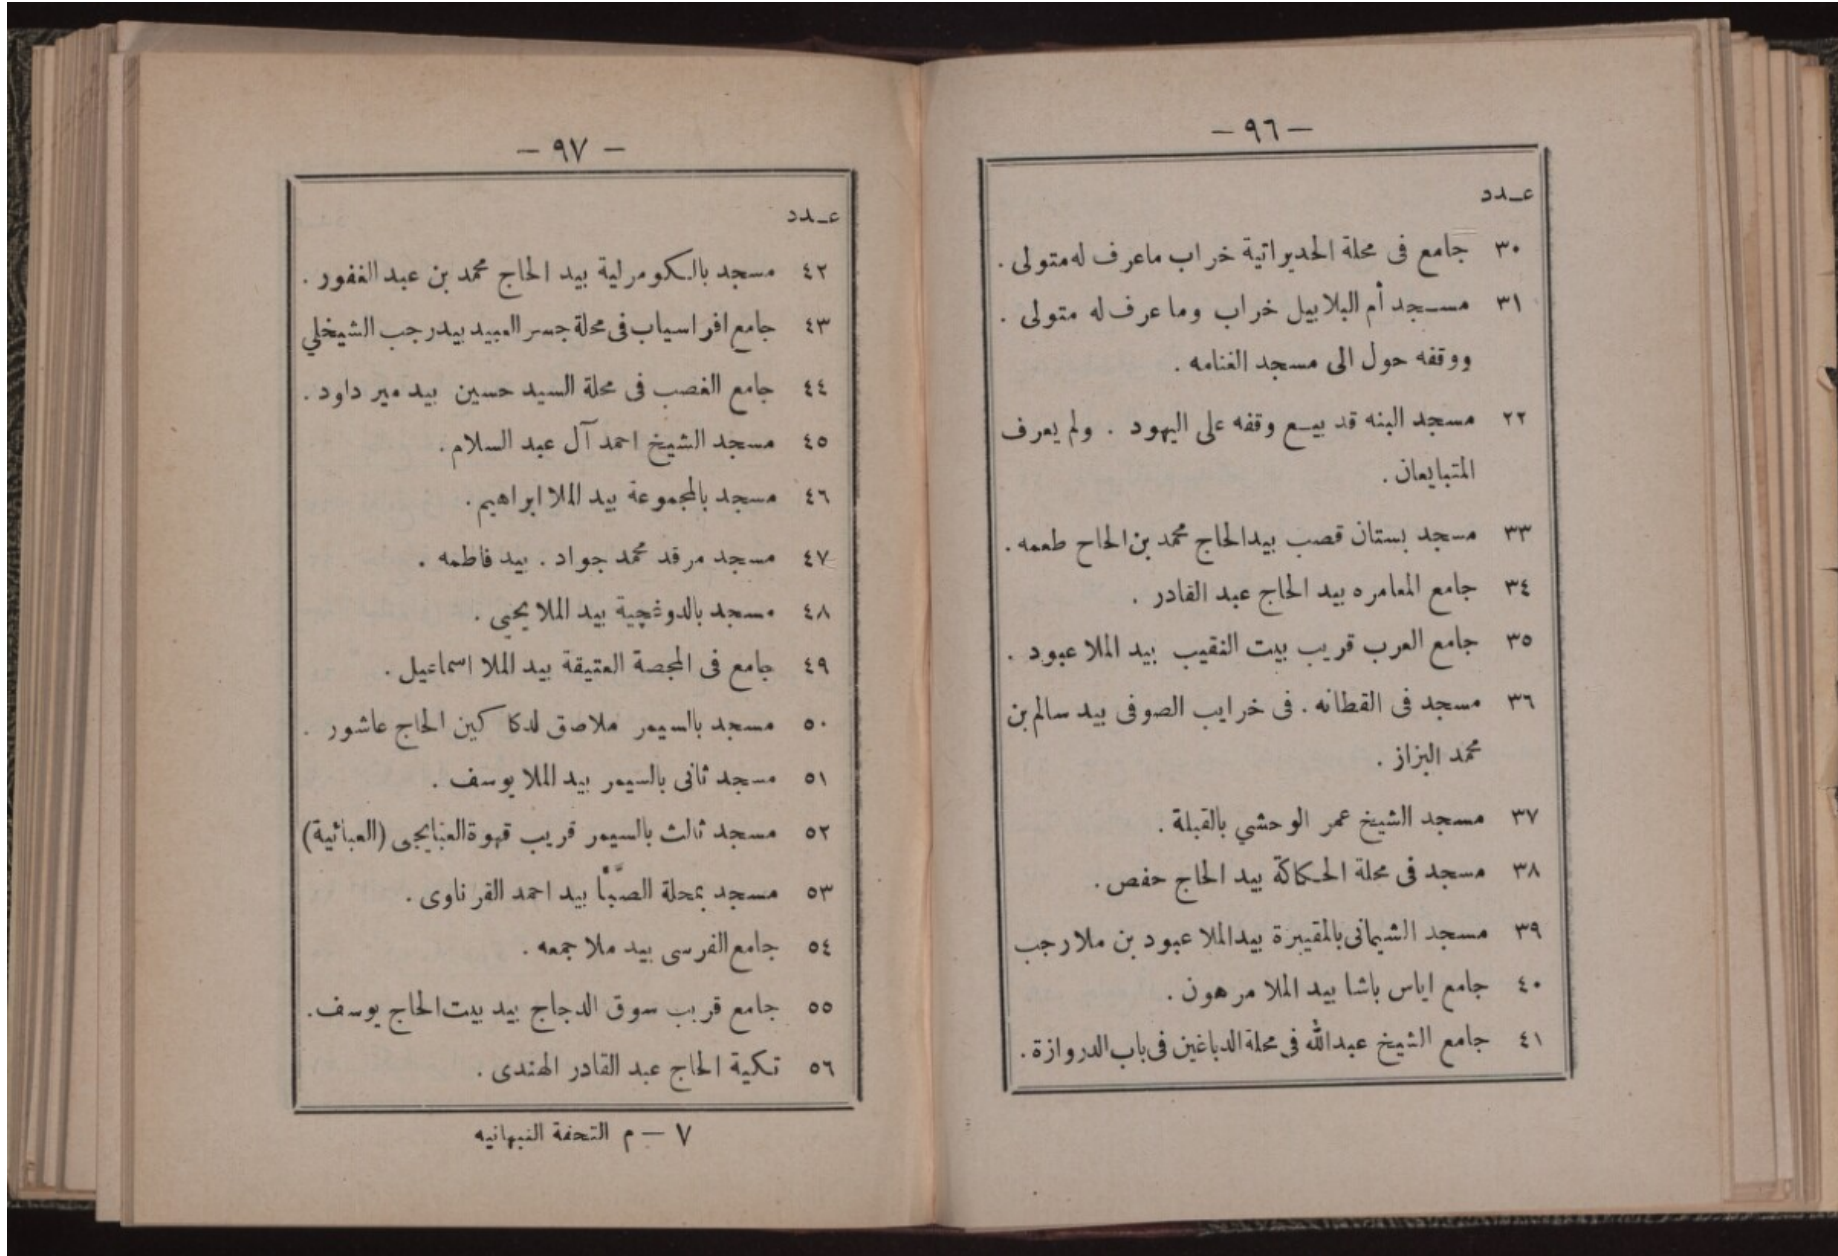 — ٩٦ —
عـدد
٣٠ جامع فى محلة الحديراتية خراب ماعرف له متولى .
٣١ مسـجد أم البلابيل خراب وما عرف له متولى .
ووقفه حول الى مسجد الغنامه .
٢٢ مسجد البنه قد بيـع وقفه على اليهود . ولم يعرف
المتبايعان .
٣٣ مسجد بستان قصب بيد الحاج محمد بن الحاح طعمه .
٣٤ جامع المعامره بيد الحاج عبد القادر .
٣٥ جامع العرب قريب بيت النقيب بيد الملا عبود .
٣٦ مسجد فى القطانه . فى خرايب الصوفى بيد سالم بن
محمد البزاز .
٣٧ مسجد الشيخ عمر الوحشي بالقبلة .
٣٨ مسجد فى محلة الحـكاكة بيد الحاج حفص .
٣٩ مسجد الشيمانى بالمقيبرة بيد الملا عبود بن ملا رجب
٤٠ جامع اياس باشا بيد الملا مرهون .
٤١ جامع الشيخ عبدالله فى محلة الدباغين فى باب الدروازة .
— ٩٧ —
عـدد
٤٢ مسجد بالـكومرلية بيد الحاج محمد بن عبد الغفور .
٤٣ جامع افراسياب فى محلة جسر العبيد بيد رجب الشيخلي
٤٤ جامع الغصب فى محلة السيد حسين بيد مير داود .
٤٥ مسجد الشيخ احمد آل عبد السلام .
٤٦ مسجد بالمجموعة بيد الملا ابراهيم .
٤٧ مسجد مرقد محمد جواد . بيد فاطمه .
٤٨ مسجد بالدوغچية بيد الملا يحيى .
٤٩ جامع فى المجصة العتيقة بيد الملا اسماعيل .
٥٠ مسجد بالسيمر ملاصق لدكا كين الحاج عاشور .
٥١ مسجد ثانى بالسيمر بيد الملا يوسف .
٥٢ مسجد ثالث بالسيمر قريب قهوة العبايجى (العبائية)
٥٣ مسجد بمحلة الصبَّا بيد احمد القرناوى .
٥٤ جامع الفرسى بيد ملا جمعه .
٥٥ جامع قريب سوق الدجاج بيد بيت الحاج يوسف .
٥٦ تـكية الحاج عبد القادر الهندى .
٧ — م التحفة النبهانيه